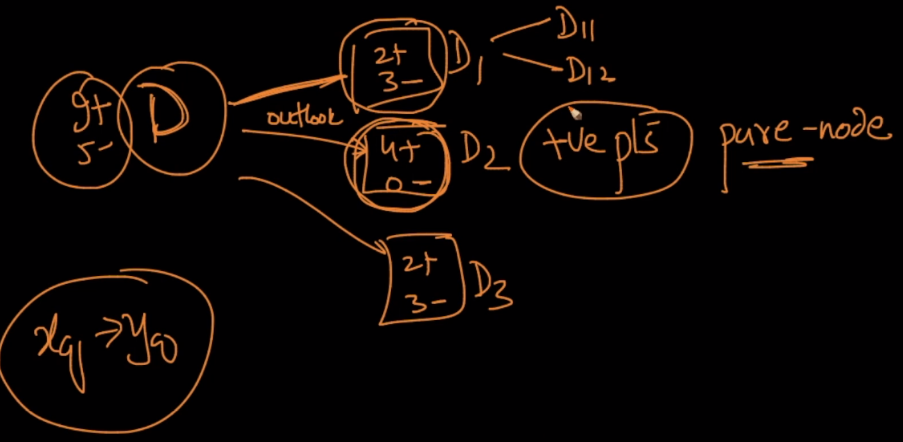 9+
5-
D
outlook
2+
3-
D1
D11
D12
4+
0-
D2
+ve pts
pure-node
2+
3-
D3
xq → yq